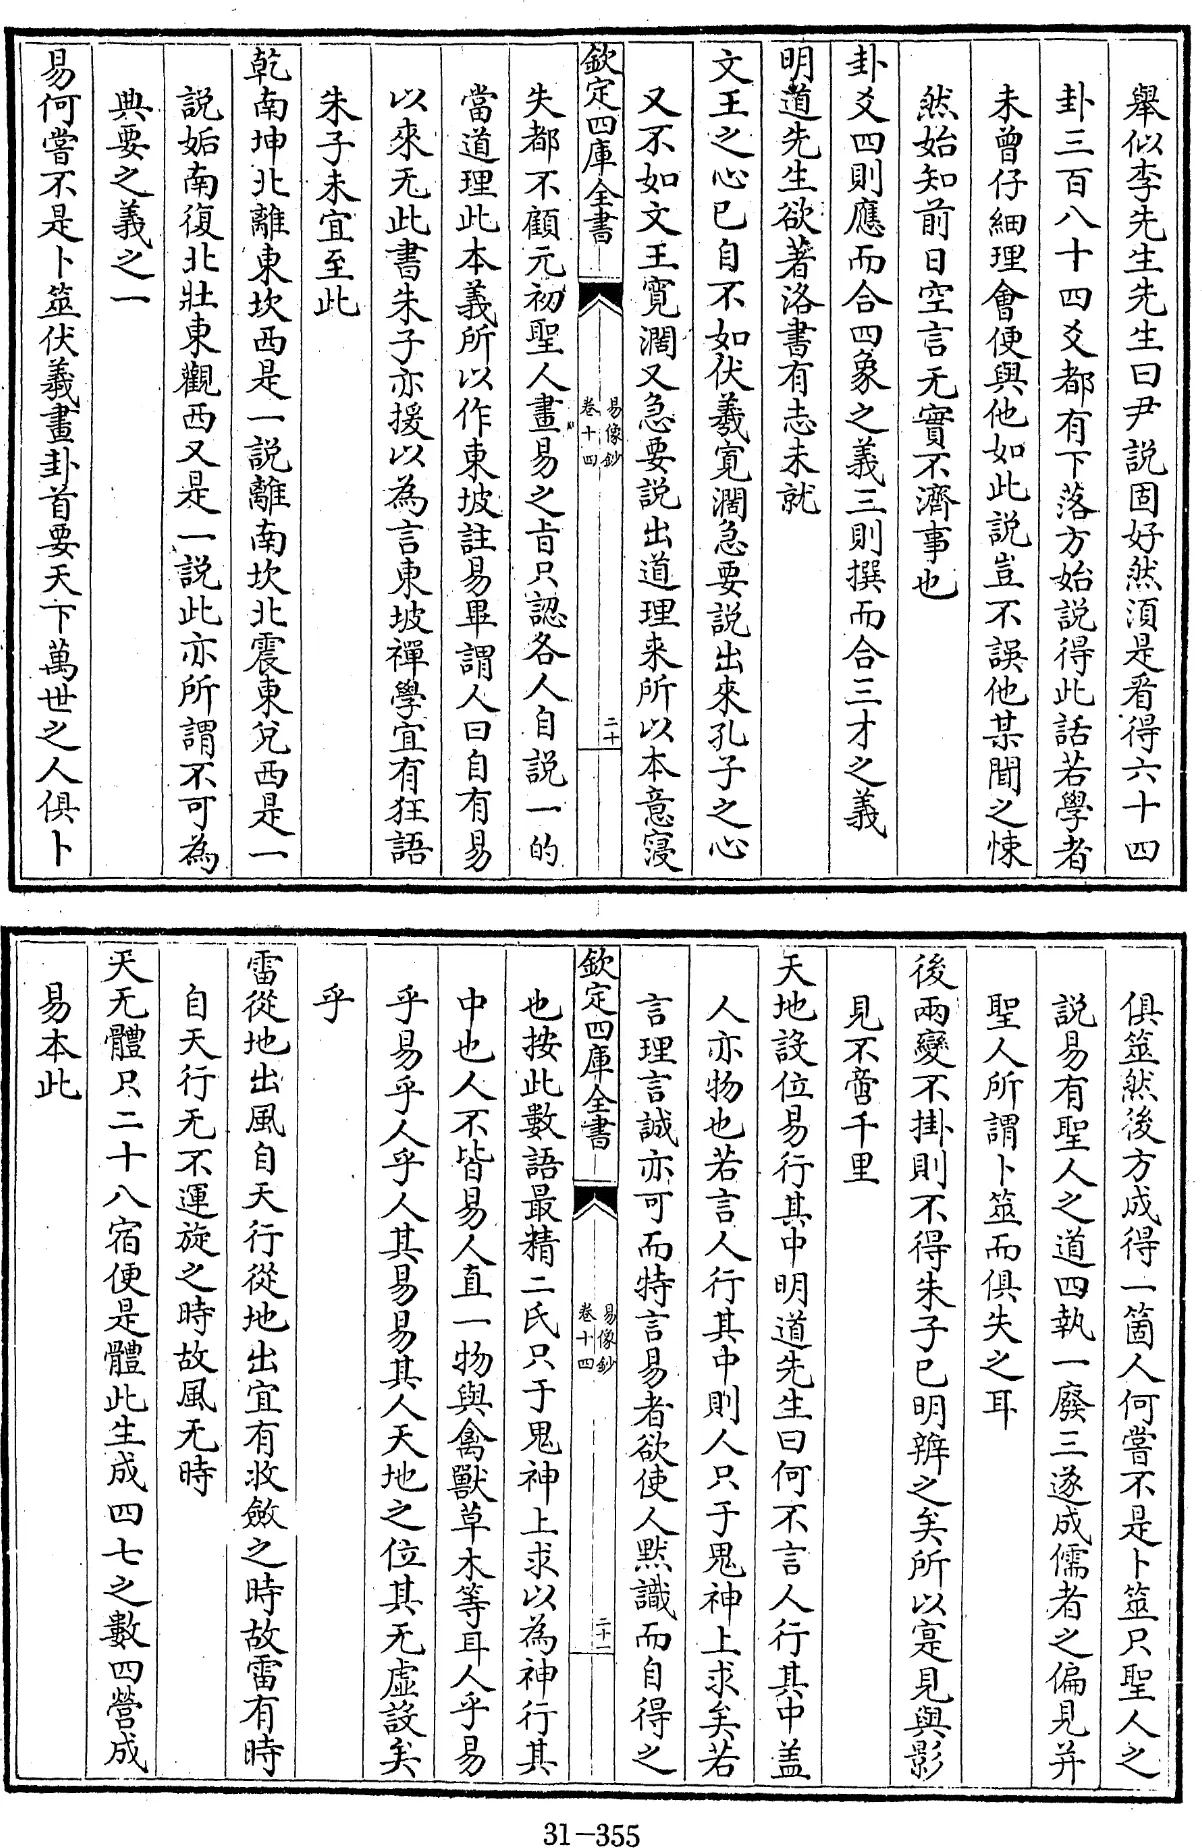 舉似李先生先生曰尹説固好然湏是看得六十四
卦三百八十四爻都有下落方始説得此話若學者
未曾仔細理會便與他如此説豈不誤他某聞之悚
然始知前日空言无實不濟事也
卦爻四則應而合四象之義三則撰而合三才之義
明道先生欲著洛書有志未就
文王之心已自不如伏羲寛濶急要説出來孔子之心
又不如文王寛濶又急要説出道理来所以本意寖
欽定四庫全書
易像鈔
卷十四
二十
失都不顧元初聖人畫易之㫖只認各人自説一的
當道理此本義所以作東坡註易畢謂人曰自有易
以來无此書朱子亦援以為言東坡禪學宜有狂語
朱子未宜至此
乾南坤北離東坎西是一説離南坎北震東兌西是一
説姤南復北壯東觀西又是一説此亦所謂不可為
典要之義之一
易何嘗不是卜筮伏羲畫卦首要天下萬世之人俱卜
俱筮然後方成得一箇人何嘗不是卜筮只聖人之
説易有聖人之道四執一廢三遂成儒者之偏見并
聖人所謂卜筮而俱失之耳
後兩變不掛則不得朱子已明辨之矣所以寔見與影
見不啻千里
天地設位易行其中明道先生曰何不言人行其中盖
人亦物也若言人行其中則人只于鬼神上求矣若
言理言誠亦可而特言易者欲使人黙識而自得之
欽定四庫全書
易像鈔
卷十四
二十一
也按此數語最精二氏只于鬼神上求以為神行其
中也人不皆易人直一物與禽獸草木等耳人乎易
乎易乎人乎人其易易其人天地之位其无虛設矣
乎
雷從地出風自天行從地出宜有收斂之時故雷有時
自天行无不運旋之時故風无時
天无體只二十八宿便是體此生成四七之數四營成
易本此
31-355